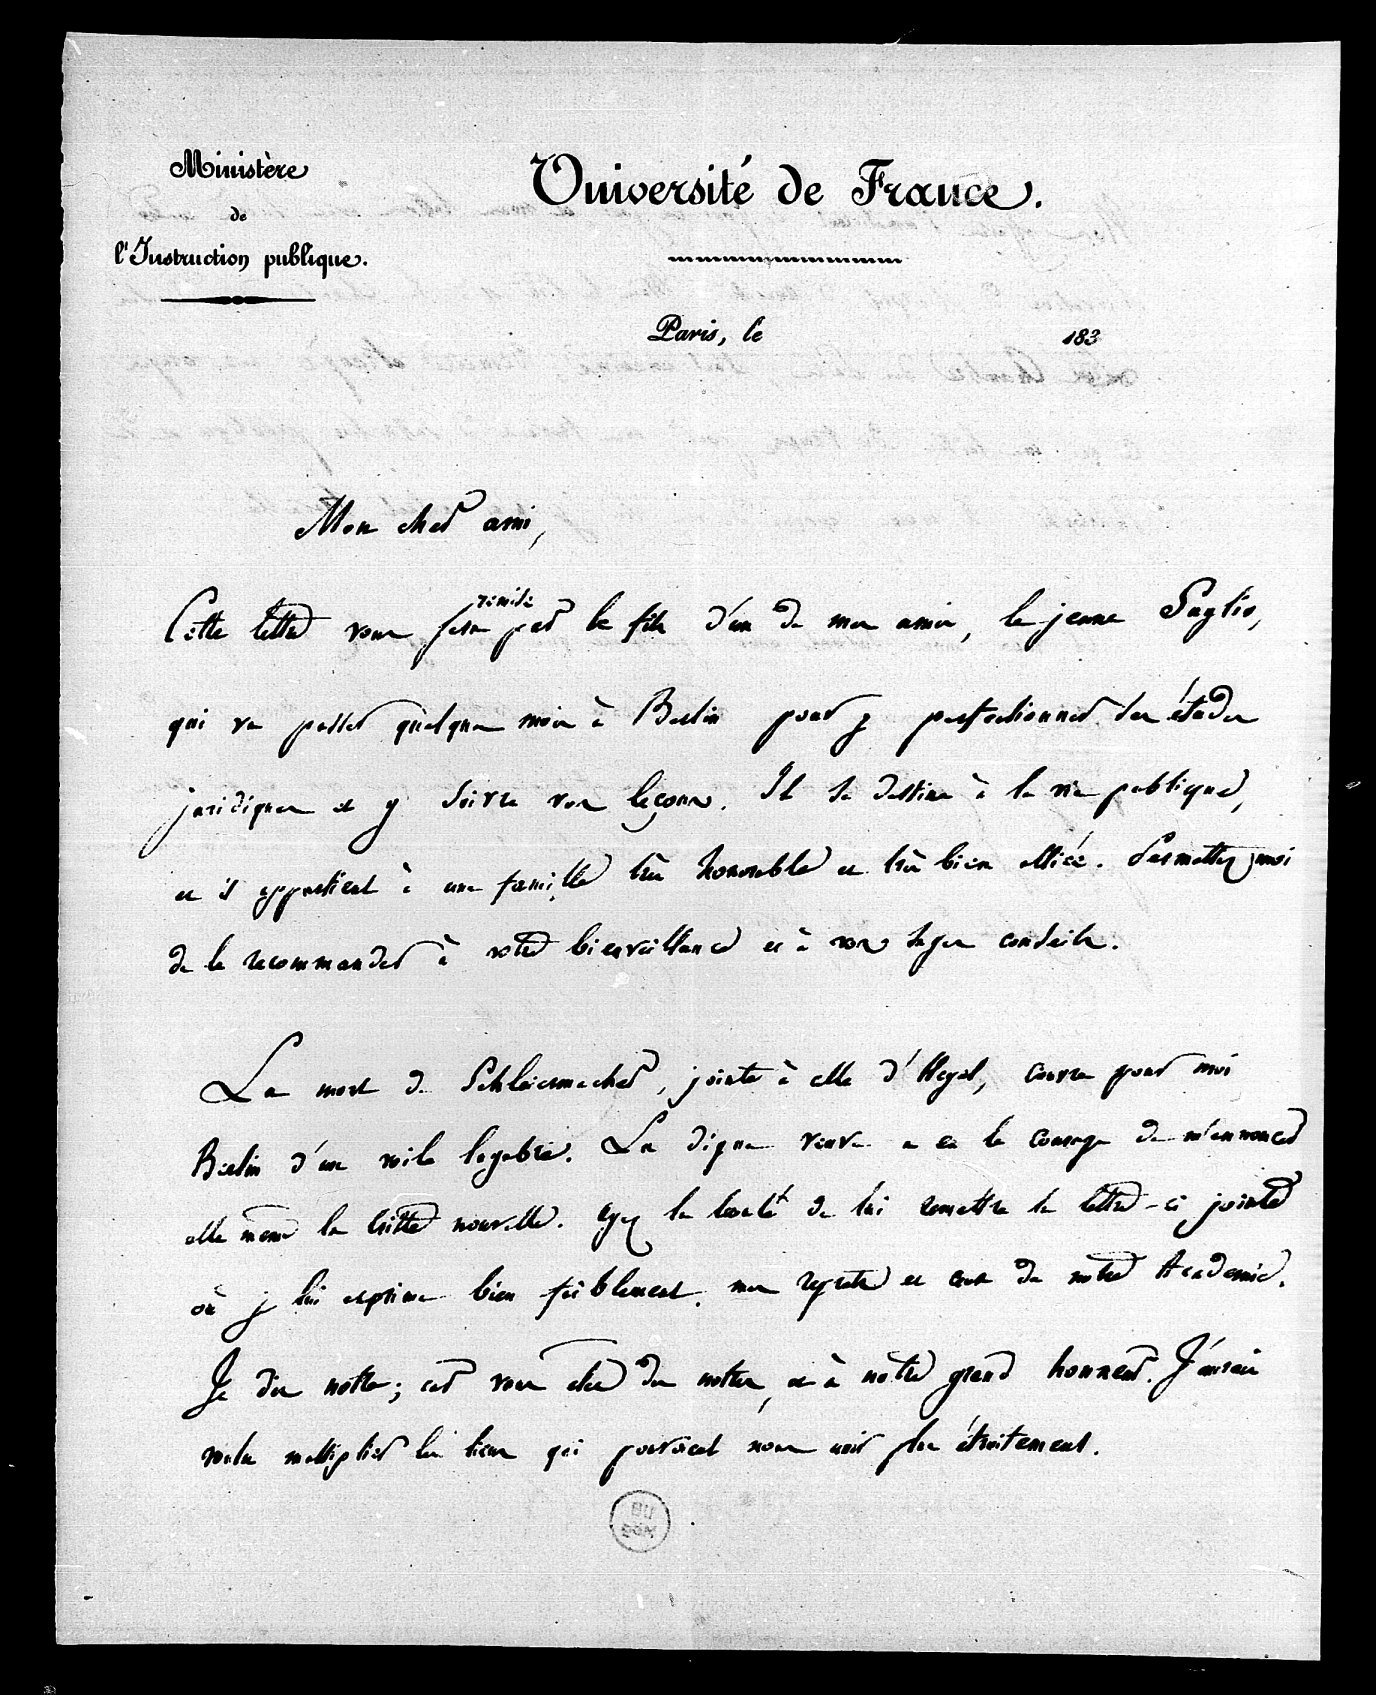 Ministère
de
l'Instruction publique.
Université de France.
Paris, le 183
Mon cher ami,
remise
Cette lettre vous sera par le fils d'un de mes amis, le jeune Saglio,
qui va passer quelques mois à Berlin pour y perfectionner ses études
juridiques et y suivre vos leçons. Il se destine à la vie publique,
et il appartient à une famille très honorable et très bien alliée. Permettez moi
de le recommander à votre bienveillance et à vos sages conseils.
La mort de Schleiermacher, jointe à celle d'Hegel, couvre pour moi
Berlin d'un voile lugubre. La digne veuve a eu le courage de m'annoncer
elle même la triste nouvelle. Ayez la bonté de lui remettre la lettre-ci jointe
où je lui exprime bien faiblement mes regrets et ceux de notre Académie.
Je dis notre; car vous êtes des notres, et à notre grand honneur. J'aurais
voulu multiplier les liens qui pouvaient nous unir plus étroitement.
BU